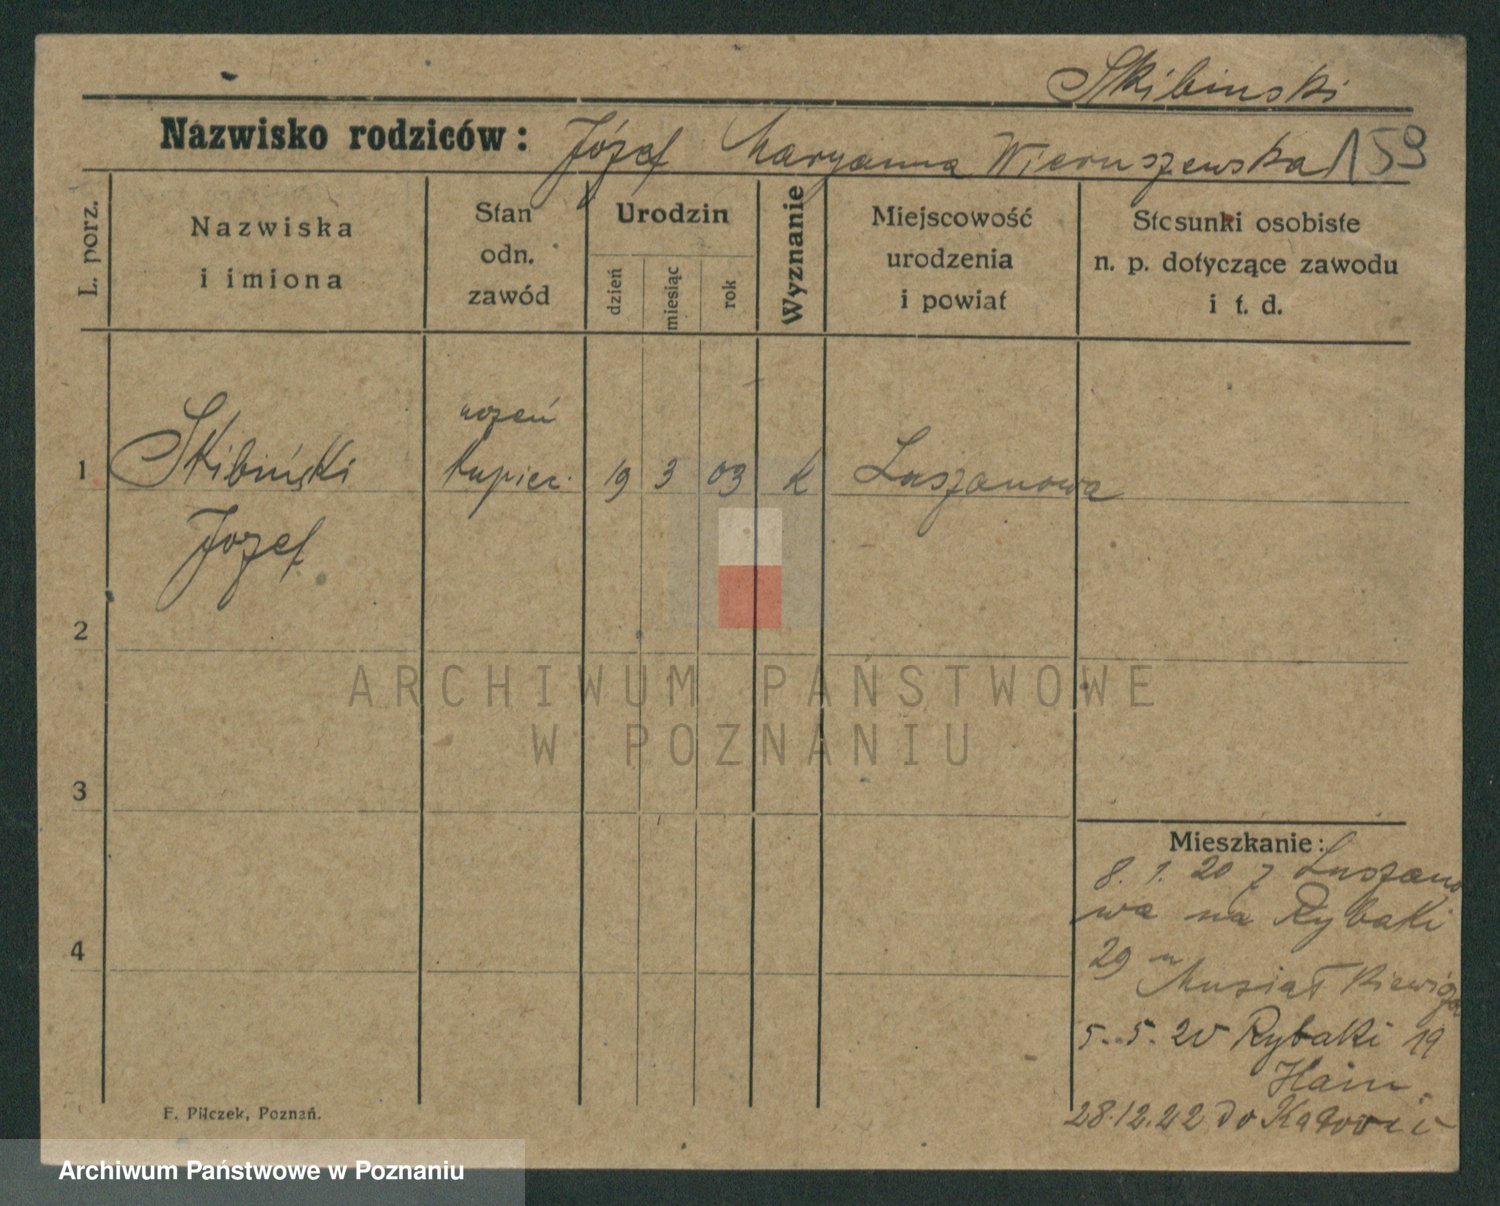 Skibinski
Nazwisko rodziców: Józef Maryanna Wieruszewska 159
L. porz.
Nazwiska
i imiona
Stan
odn.
zawód
Urodzin
dzień
miesiąc
rok
Wyznanie
Miejscowość
urodzenia
i powiat
Stosunki osobiste
n. p. dotyczące zawodu
i t. d.
uczeń
1 Skibiński kupiec. 19 3 03 k Luszanowa
Jozef
2
ARCHIWUM PAŃSTWOWE
W POZNANIU
3
Mieszkanie:
8. 1. 20 z Luszano
wa na Rybaki
4
29 u
Musiał
5. 5. 20 Rybaki 19
Hain
28.12.22 do Katowic
F. Pilczek, Poznań.
Archiwum Państwowe w Poznaniu